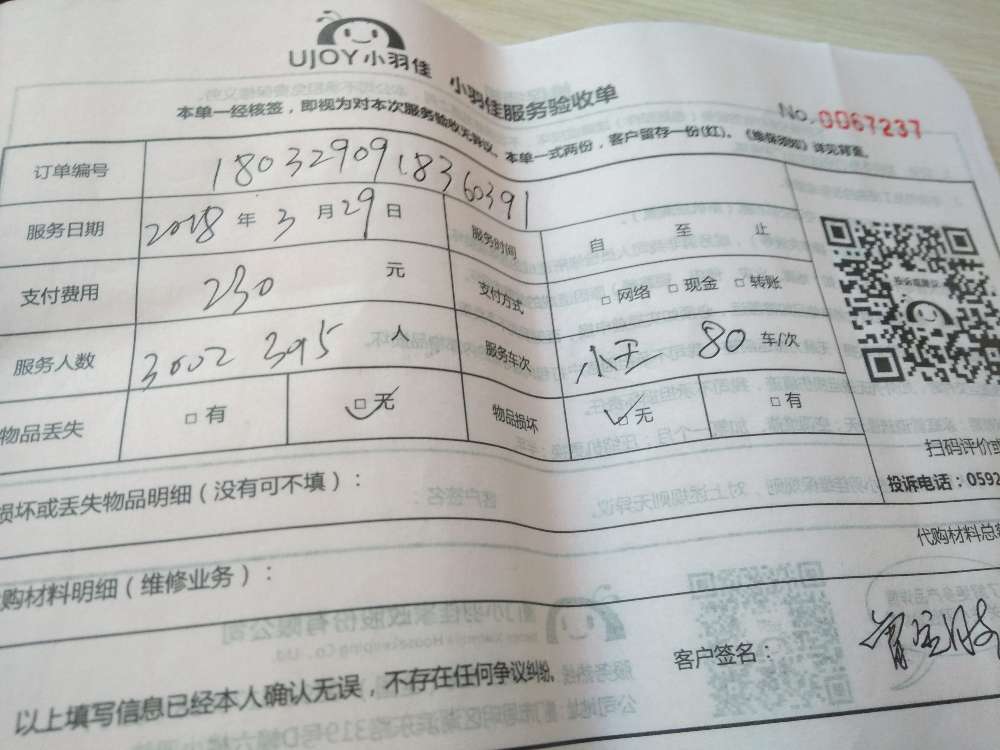 UJOY小羽佳 小羽佳服务验收单
No.0067237
本单一经核签，即视为对本次服务验收无异议。本单一式两份，客户留存一份(红)。《维保须知》详见背面。
订单编号 18032909183 60391
服务日期 2018 年 3 月 29 日 服务时间 自 至 止
支付费用 230 元 支付方式 □网络 □现金 □转账
服务人数 3002 395 人 服务车次 小王 80 车/次
物品丢失 □有 □无 物品损坏 无 □有
扫码评价或
投诉电话：0592
损坏或丢失物品明细（没有可不填）：
代购材料总
购材料明细（维修业务）：
以上填写信息已经本人确认无误，不存在任何争议纠纷。 客户签名：